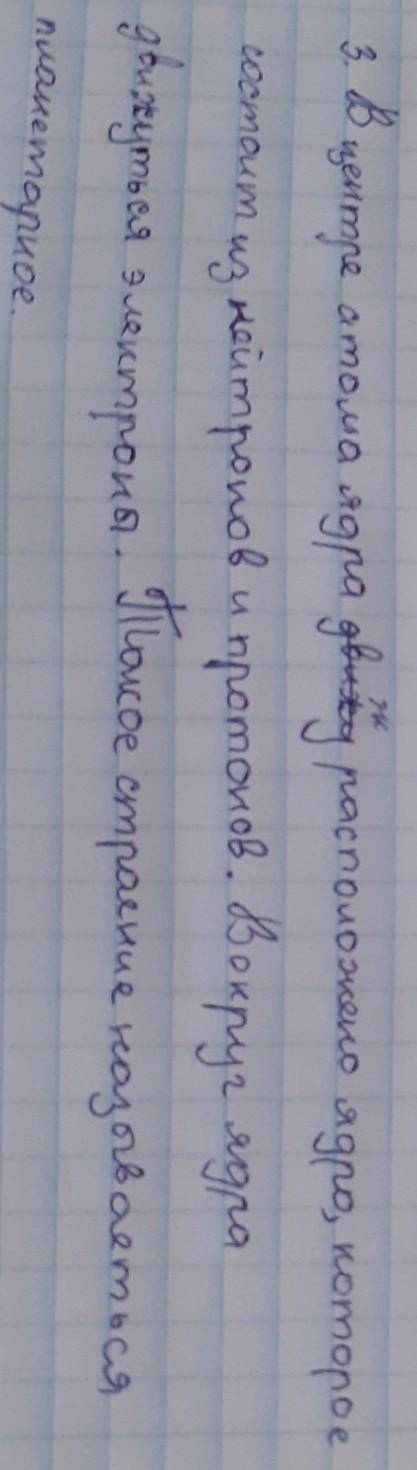 3. В центре атома ядра расположено ядро, которое
состоит из нейтронов и протонов. Вокруг ядра
движуться электроны. Такое страение называеться
планетарное.